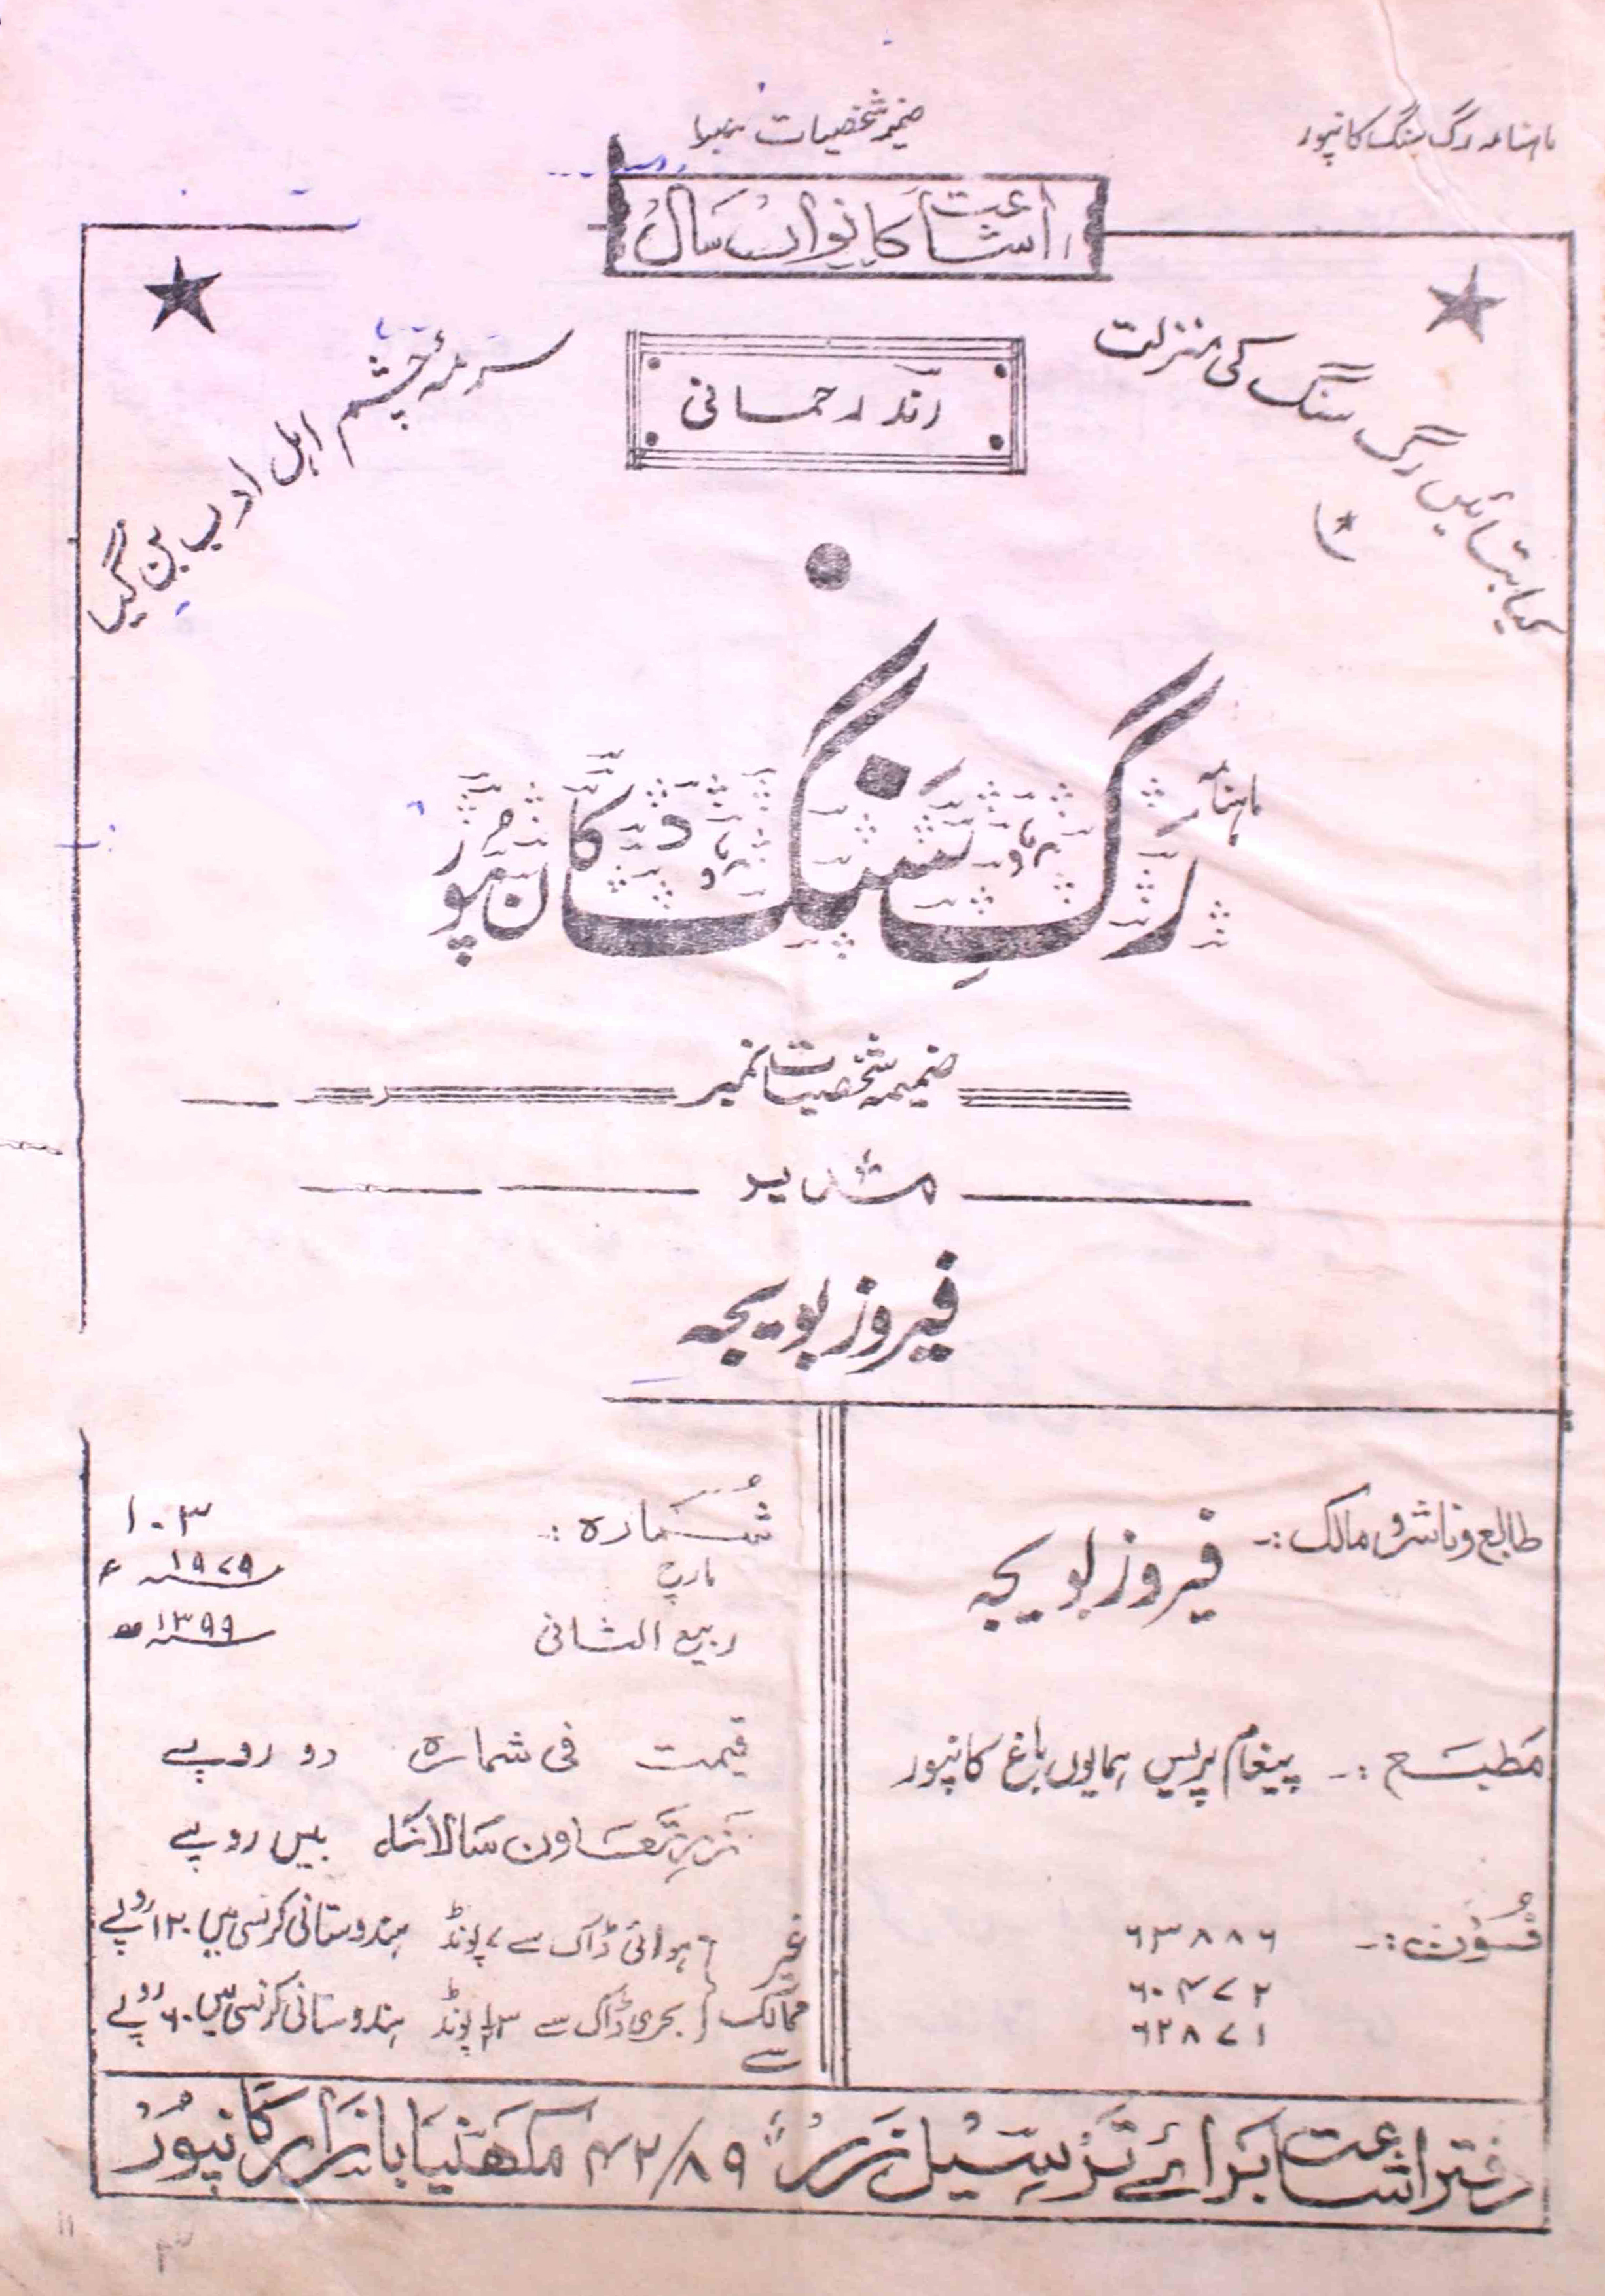 ماہنامہ رگ سنگ کانپور
ضمیمہ شخصیات نمبر
اشاعت کا نواں سال
کیا بتائیں رگ سنگ کی منزلت
سرمۂ چشم اہل ادب بن گیا
رند رحمانی
ماہنامہ
رگِ سنگ کانپور
ضمیمہ شخصیات نمبر
مدیر
فیروز بویجہ
طابع و ناشر و مالک :-
فیروز بویجہ
مطبع :- پیغام پریس ہمایوں باغ کانپور
فون :- ۶۳۸۸۶
۶۰۴۷۲
۶۲۸۷۱
شمارہ :- ۱۰۳
مارچ ۱۹۷۹ء
ربیع الثانی ۱۳۹۹ھ
قیمت فی شمارہ دو روپے
زرِ تعاون سالانہ بیس روپے
غیر ممالک سے
ہوائی ڈاک سے ۷ پونڈ ہندوستانی کرنسی میں ۱۲۰ روپے
بحری ڈاک سے ۳½ پونڈ ہندوستانی کرنسی میں ۶۰ روپے
دفتر اشاعت برائے ترسیل زر: ۴۲/۸۹ مکھنیا بازار کانپور